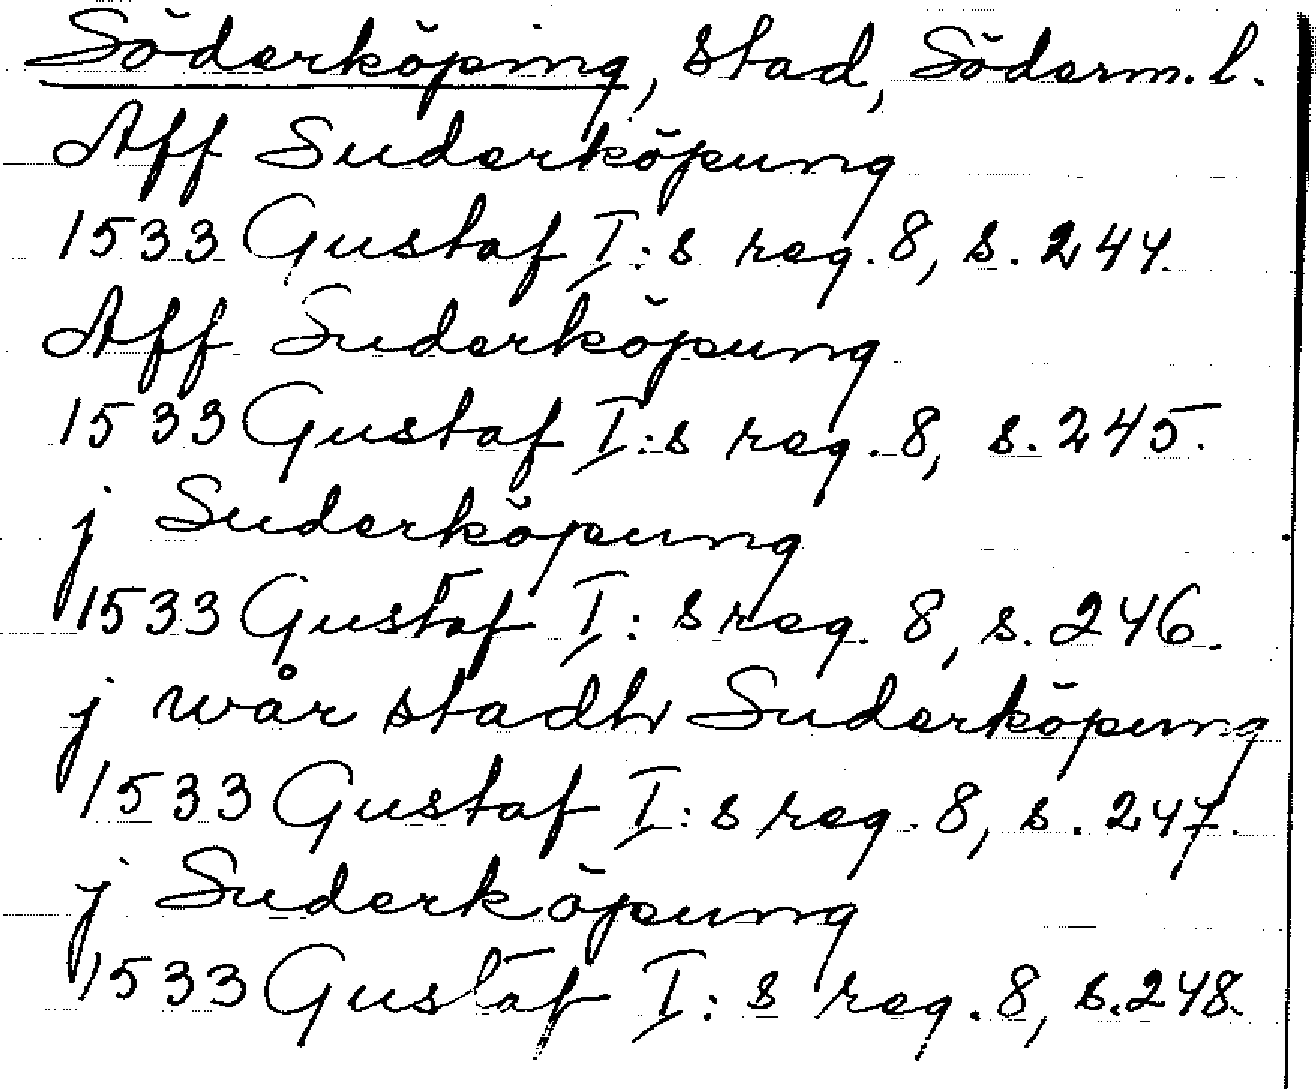 Söderköping, stad, Söderm. l.
Aff Suderköpung
1533 Gustaf I:s reg. 8, s. 244.
Aff Suderköpung
1533 Gustaf I:s reg. 8, s. 245.
j Suderköpung
1533 Gustaf I:s reg. 8, s. 246.
j wår stadh Suderköpung
1533 Gustaf I:s reg. 8, s. 247.
j Suderköpung
1533 Gustaf I:s reg. 8, s. 248.